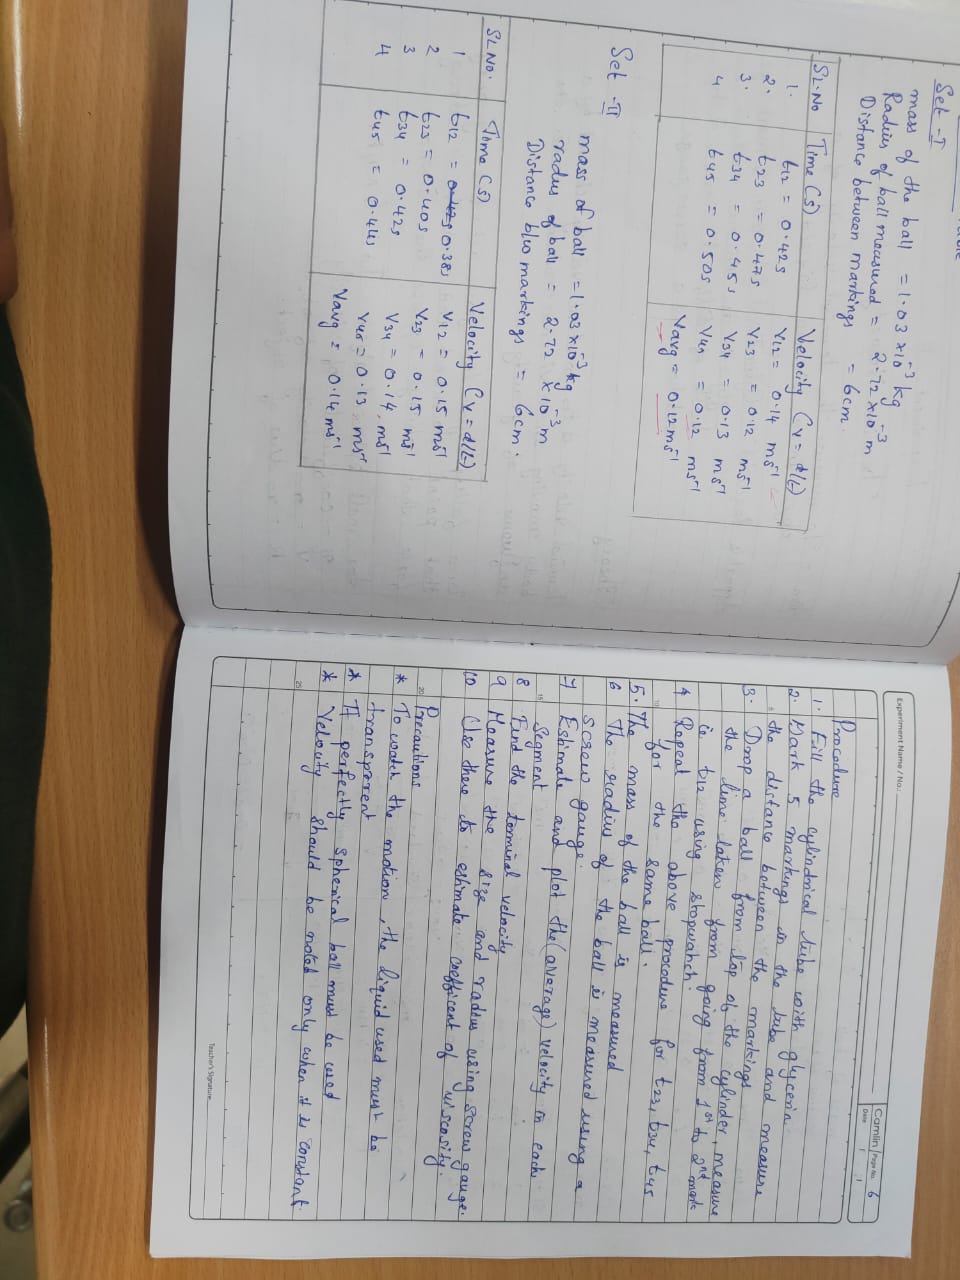 Set - I
mass of the ball = 1.03 ×10⁻³ kg
Radius of ball measured = 2.72 ×10⁻³ m
Distance between markings = 6cm.
SL.No Time (s) Velocity (v = d/t)
1. t12 = 0.42s V12 = 0.14 ms⁻¹
2. t23 = 0.47s V23 = 0.12 ms⁻¹
3. t34 = 0.45s V34 = 0.13 ms⁻¹
4 t45 = 0.50s V45 = 0.12 ms⁻¹
Vavg = 0.12 ms⁻¹
Set - II
mass of ball = 1.03 ×10⁻³ kg
radus of ball = 2.72 ×10⁻³ m
Distance b/w markings = 6cm.
SL No. Time (s) Velocity (v = d/t)
1 t12 = 0.42s 0.38s V12 = 0.15 ms⁻¹
2 t23 = 0.40s V23 = 0.15 ms⁻¹
3 t34 = 0.42s V34 = 0.14 ms⁻¹
4 t45 = 0.44s V45 = 0.13 ms⁻¹
Vavg = 0.14 ms⁻¹
Experiment Name / No.:
Camlin Page No. 6
Date / /
Procedure
1. Fill the cylindrical tube with glycerin.
2. Mark 5 markings in the tube and measure
the distance between the markings
3. Drop a ball from top of the cylinder, measure
the time taken from going from 1st to 2nd mark
ie t12 using stopwatch.
4 Repeat the above procedure for t23, t34, t45
10 for the same ball.
5. The mass of the ball is measured
6 The radius of the ball is measured using a
screw gauge.
7 Estimate and plot the (average) velocity in each
15 Segment
8 Find the terminal velocity
9 Measure the size and radius using screw gauge.
10 Use these to estimate coefficent of viscosity.
20 Precautions
* To watch the motion, the liquid used must be
transparent
* If perfectly spherical ball must be used
* Velocity should be noted only when it is constant.
25
Teacher's Signature